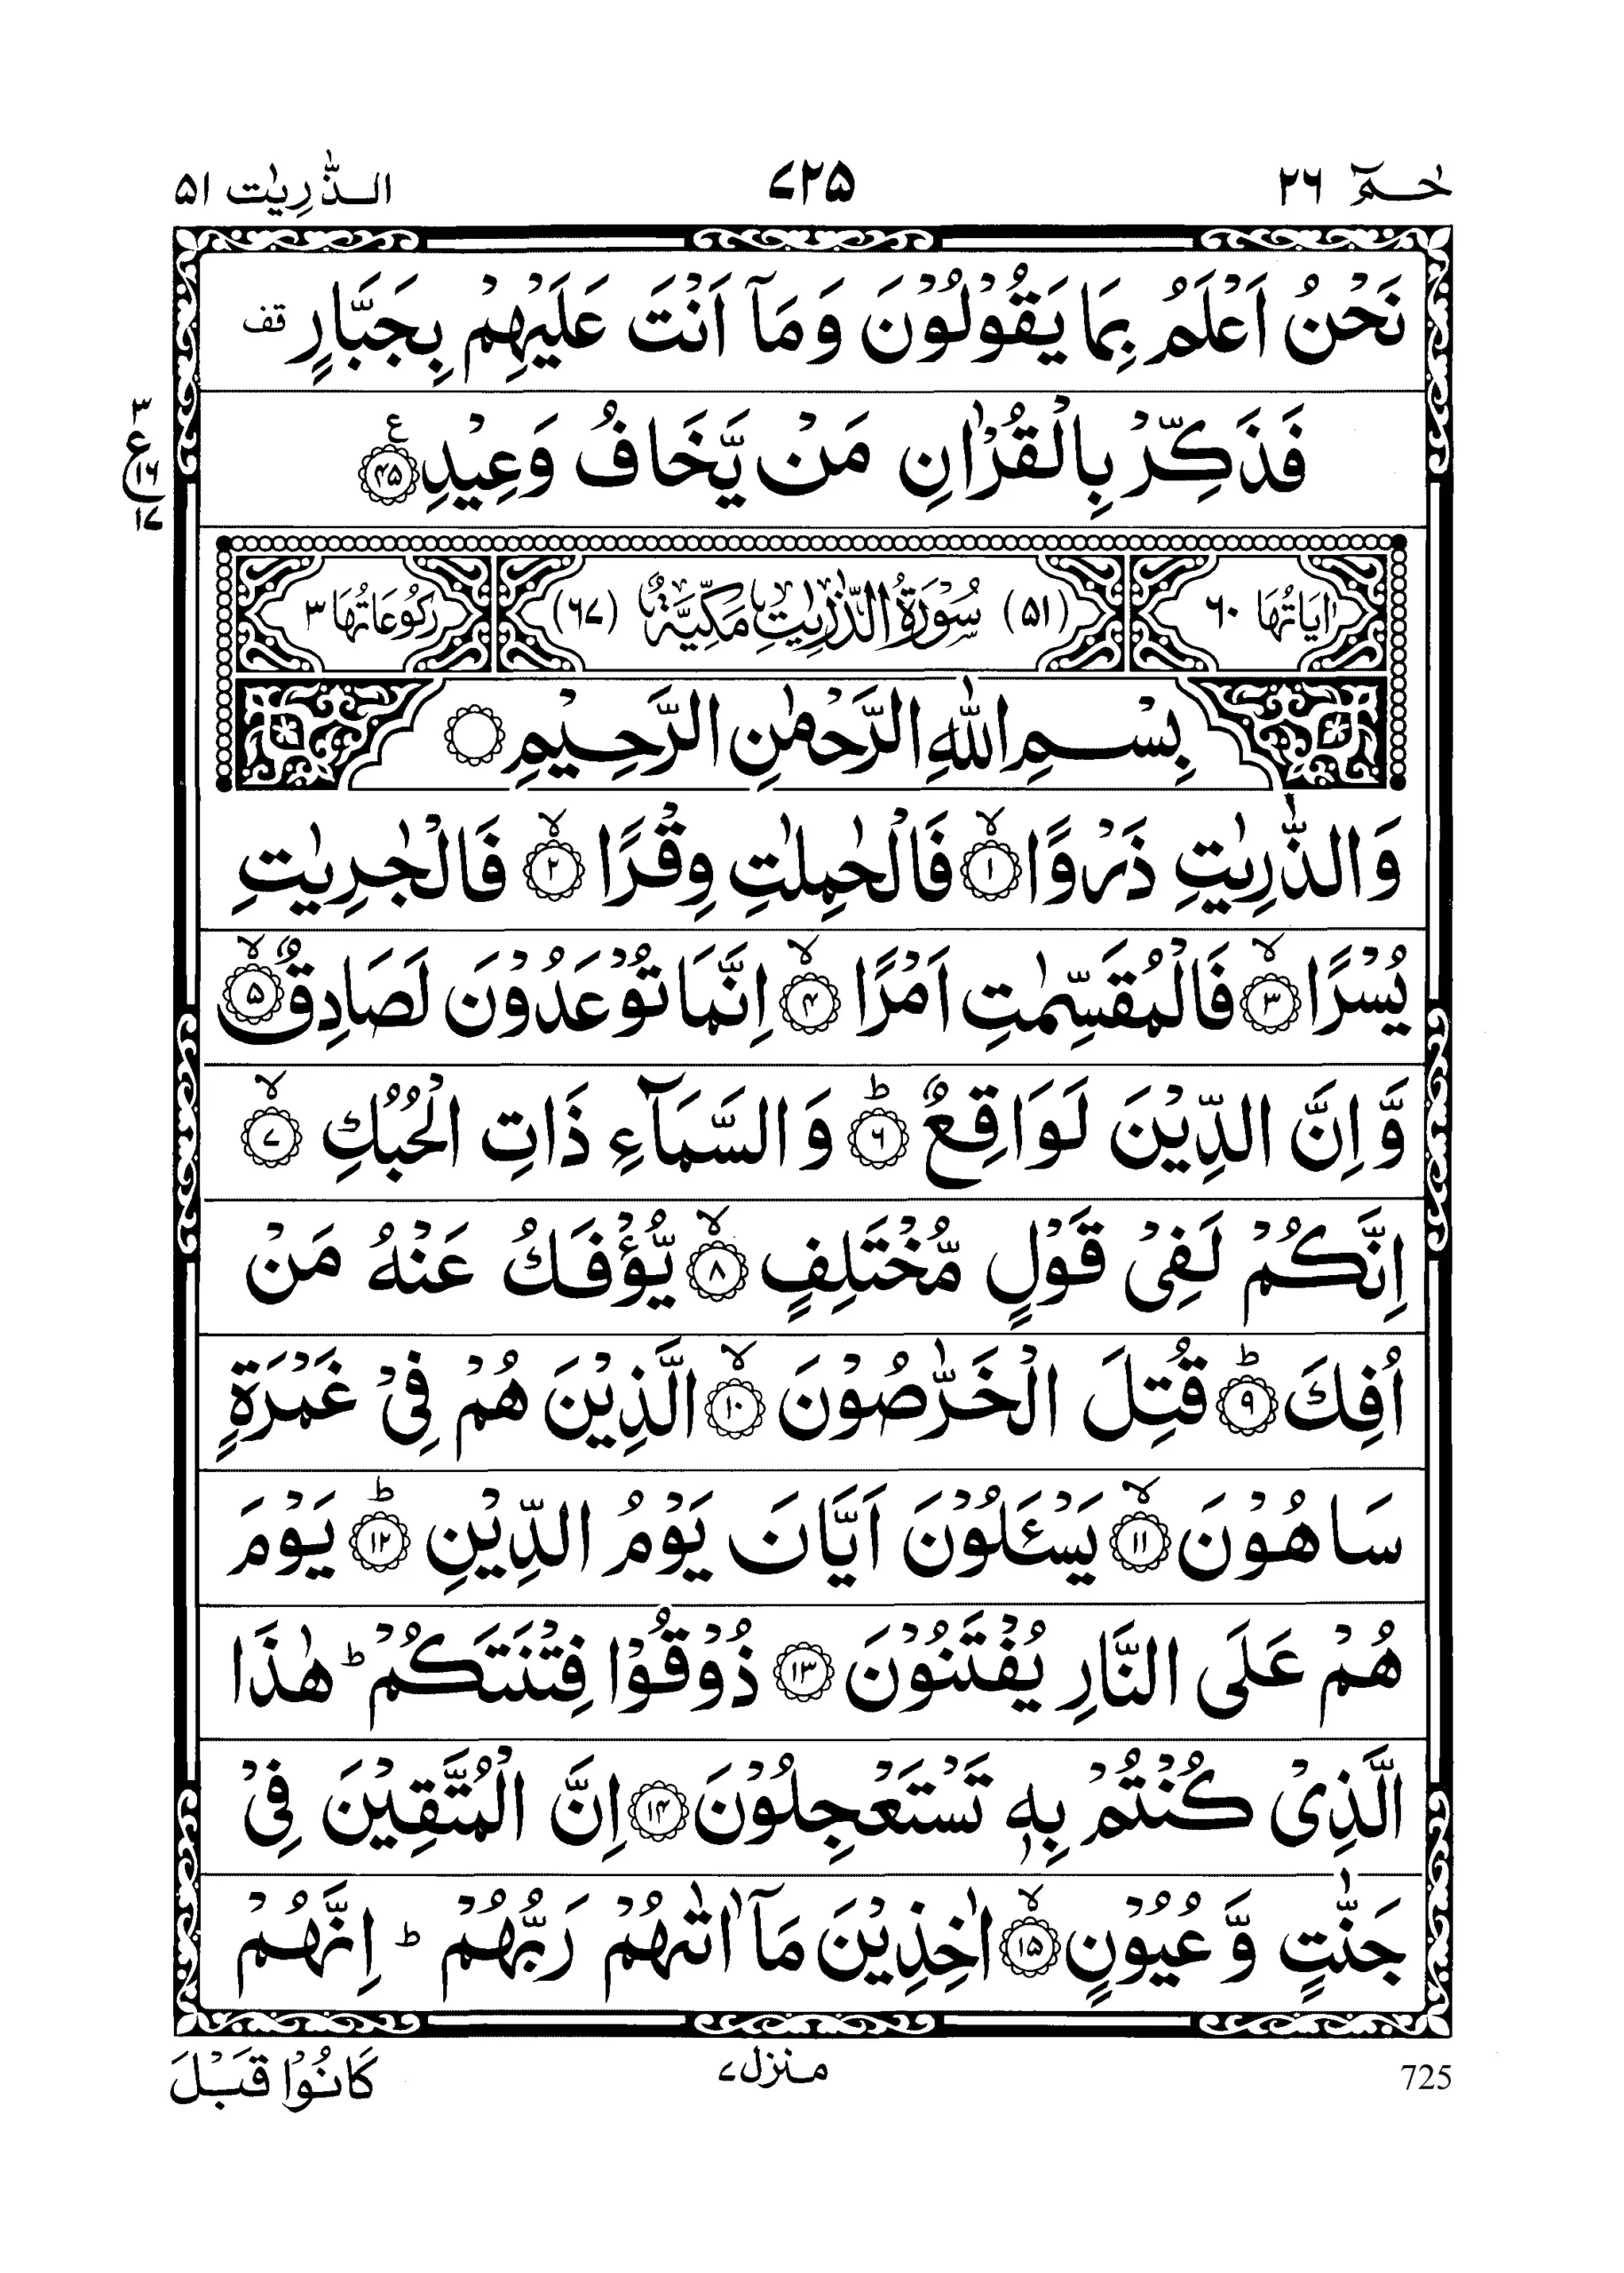 حٰـمٓ ۲۶
۷۲۵
الـذّٰرِیٰت ۵۱
نَحْنُ اَعْلَمُ بِمَا یَقُوْلُوْنَ وَمَاۤ اَنْتَ عَلَیْهِمْ بِجَبَّارٍ قف
فَذَكِّرْ بِالْقُرْاٰنِ مَنْ یَّخَافُ وَعِیْدِ ۴۵ ع
۳
ع
۱۶
۱۷
اٰیَاتُهَا ۶۰
(۵۱) سُوْرَةُ الذّٰرِیٰتِ مَكِّیَّةٌ (۶۷)
رُكُوْعَاتُهَا ۳
بِسْــمِ اللّٰهِ الرَّحْمٰنِ الرَّحِیْمِ
وَالذّٰرِیٰتِ ذَرْوًا ۱ۙ فَالْحٰمِلٰتِ وِقْرًا ۲ۙ فَالْجٰرِیٰتِ
یُسْرًا ۳ۙ فَالْمُقَسِّمٰتِ اَمْرًا ۴ۙ اِنَّمَا تُوْعَدُوْنَ لَصَادِقٌ ۵ۙ
وَّاِنَّ الدِّیْنَ لَوَاقِعٌ ۶ؕ وَالسَّمَآءِ ذَاتِ الْحُبُكِ ۷ۙ
اِنَّكُمْ لَفِیْ قَوْلٍ مُّخْتَلِفٍ ۸ۙ یُّؤْفَكُ عَنْهُ مَنْ
اُفِكَ ۹ؕ قُتِلَ الْخَرّٰصُوْنَ ۱۰ۙ الَّذِیْنَ هُمْ فِیْ غَمْرَةٍ
سَاهُوْنَ ۱۱ۙ یَسْـَٔلُوْنَ اَیَّانَ یَوْمُ الدِّیْنِ ۱۲ؕ یَوْمَ
هُمْ عَلَی النَّارِ یُفْتَنُوْنَ ۱۳ ذُوْقُوْا فِتْنَتَكُمْؕ هٰذَا
الَّذِیْ كُنْتُمْ بِهٖ تَسْتَعْجِلُوْنَ ۱۴ اِنَّ الْمُتَّقِیْنَ فِیْ
جَنّٰتٍ وَّعُیُوْنٍ ۱۵ۙ اٰخِذِیْنَ مَاۤ اٰتٰىهُمْ رَبُّهُمْؕ اِنَّهُمْ
725
مـنزل ۷
كَانُوْا قَبْـلَ